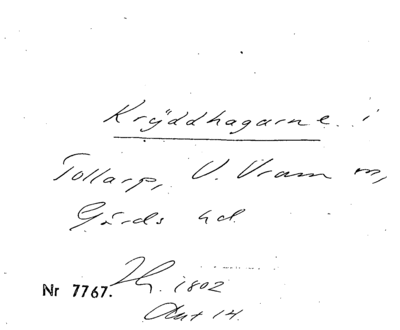 Krÿddhagarne i
Tollarp, V. Vram m,
Gärds hd.
Nr 7767. 1802
14.